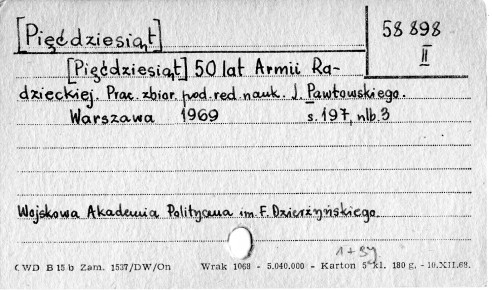 [Pięćdziesiąt]
58 898
II
[Pięćdziesiąt] 50 lat Armii Ra-
dzieckiej. Prac. zbior. pod. red nauk. J. Pawłowskiego.
Warszawa 1969 s. 197, nlb. 3
Wojskowa Akademia Polityczna im. F. Dzierżyńskiego.
CWD B 15 b Zam. 1537/DW/On Wrak 1068 - 5.040.000 - Karton 5 kl. 180 g. - 10.XII.68.